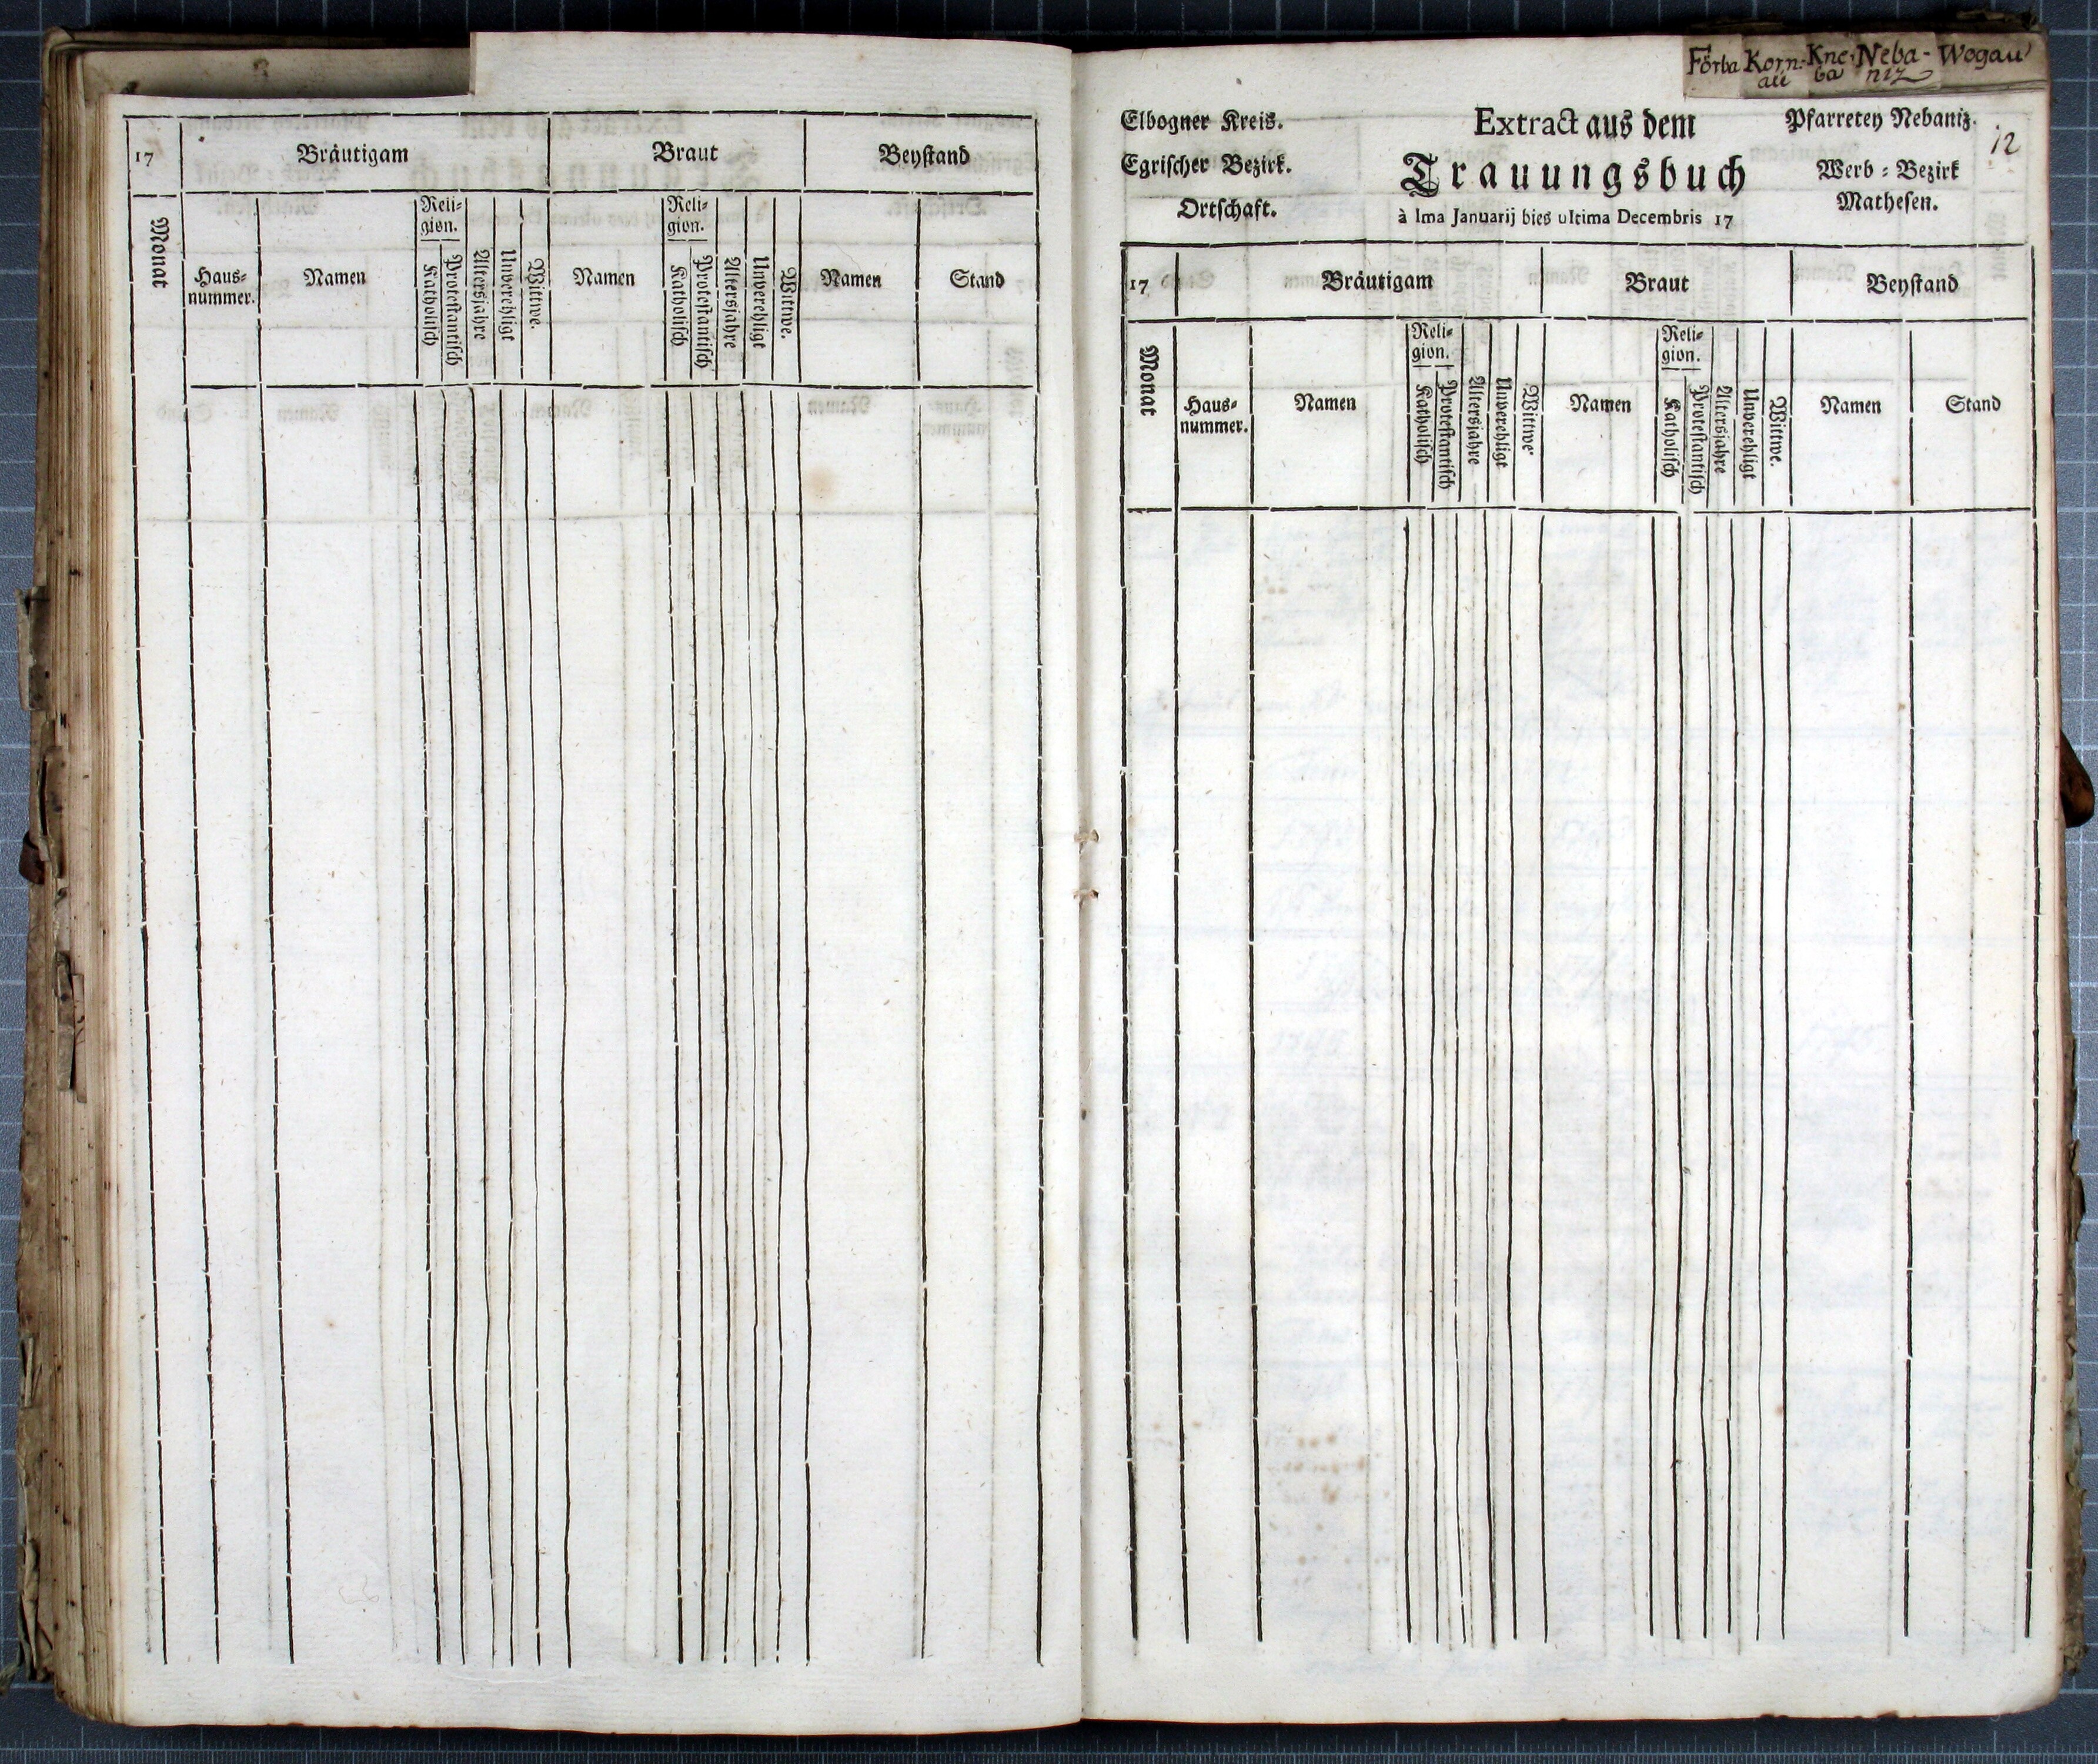 17 Bräutigam Braut Beystand
Monat Haus= nummer. Namen Reli= gion. Katholisch Protestantisch Altersjahre Unverehligt Wittwe. Namen Reli= gion. Katholisch Protestantisch Altersjahre Unverehligt Wittwe. Namen Stand
Förba Korn= Kne= Neba- Wogau
au ba niz
12
Elbogner Kreis.
Egrischer Bezirk.
Ortschaft.
Extract aus dem
Trauungsbuch
à Ima Januarij bies ultima Decembris 17
Pfarretey Nebaniz.
Werb = Bezirk
Mathesen.
17 Bräutigam Braut Beystand
Monat Haus= nummer. Namen Reli= gion. Katholisch Protestantisch Altersjahre Unverehligt Wittwe Namen Reli= gion. Katholisch Protestantisch Altersjahre Unverehligt Wittwe. Namen Stand